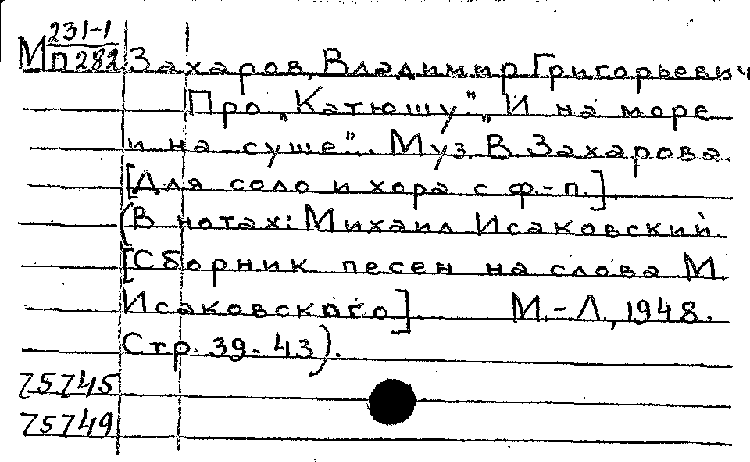 М 231-1
П 282
Захаров, Владимир Григорьевич
Про „Катюшу". „И на море
и на суше". Муз. В. Захарова.
[Для соло и хора с ф.-п.]
(В нотах: Михаил Исаковский.
[Сборник песен на слова М.
Исаковского]. М.-Л., 1948.
Стр. 39-43).
75745
75749